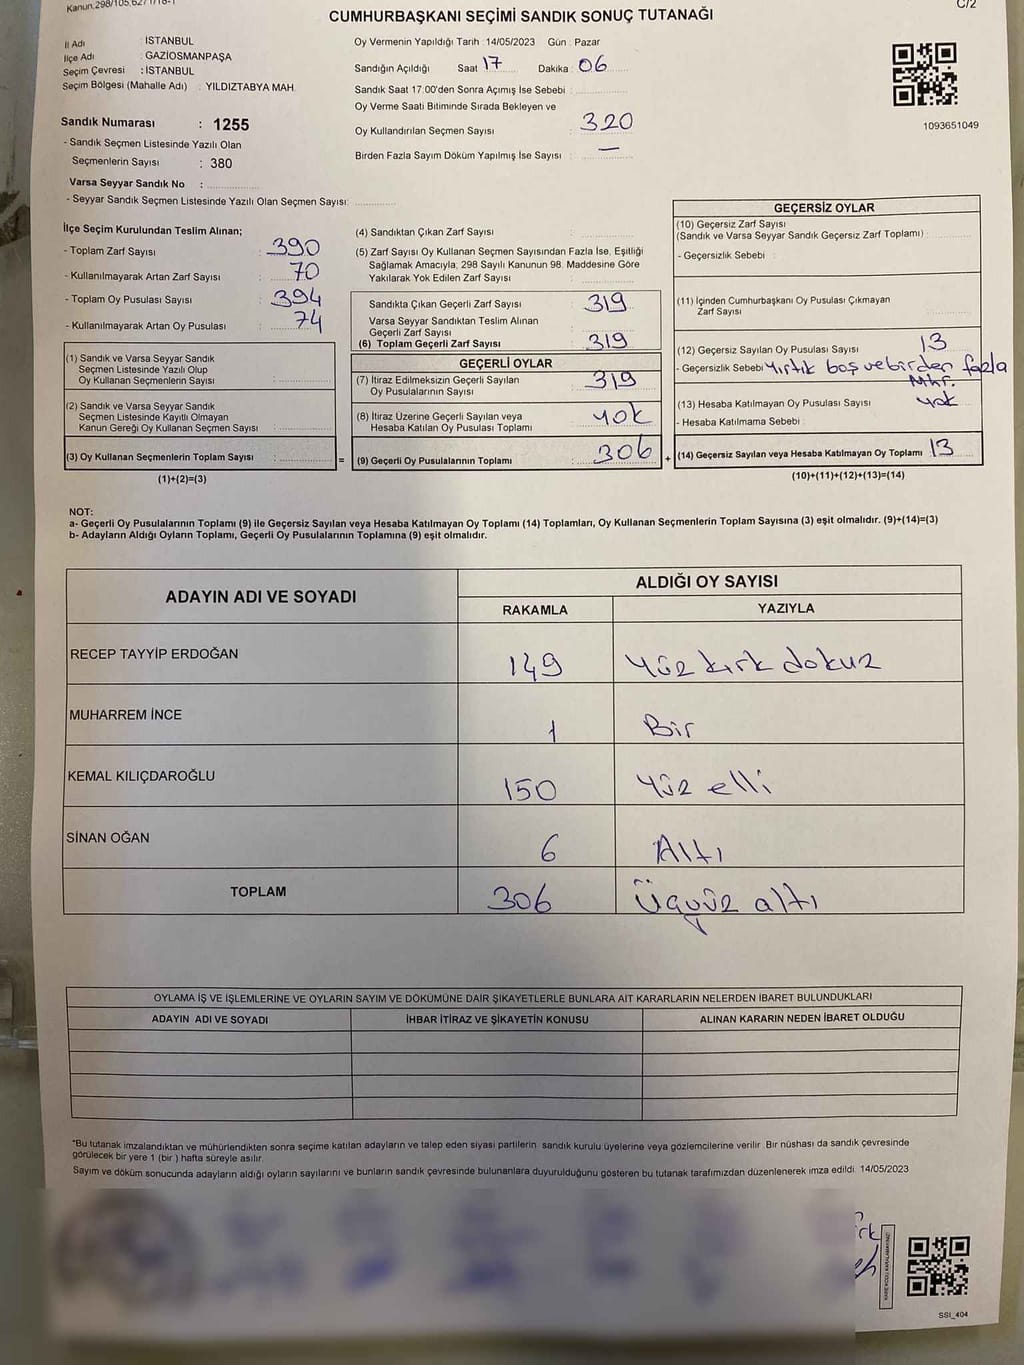 Kanun,298/105,62/1718-1
C/2
CUMHURBAŞKANI SEÇİMİ SANDIK SONUÇ TUTANAĞI
İl Adı : İSTANBUL
İlçe Adı : GAZİOSMANPAŞA
Seçim Çevresi : İSTANBUL
Seçim Bölgesi (Mahalle Adı) : YILDIZTABYA MAH.
Sandık Numarası : 1255
- Sandık Seçmen Listesinde Yazılı Olan
Seçmenlerin Sayısı : 380
Varsa Seyyar Sandık No :
- Seyyar Sandık Seçmen Listesinde Yazılı Olan Seçmen Sayısı:
Oy Vermenin Yapıldığı Tarih : 14/05/2023 Gün : Pazar
Sandığın Açıldığı Saat : 17 Dakika : 06
Sandık Saat 17:00'den Sonra Açımış İse Sebebi :
Oy Verme Saati Bitiminde Sırada Bekleyen ve
Oy Kullandırılan Seçmen Sayısı : 320
Birden Fazla Sayım Döküm Yapılmış İse Sayısı : —
1093651049
İlçe Seçim Kurulundan Teslim Alınan;
- Toplam Zarf Sayısı : 390
- Kullanılmayarak Artan Zarf Sayısı : 70
- Toplam Oy Pusulası Sayısı : 394
- Kullanılmayarak Artan Oy Pusulası : 74
(1) Sandık ve Varsa Seyyar Sandık
Seçmen Listesinde Yazılı Olup
Oy Kullanan Seçmenlerin Sayısı :
(2) Sandık ve Varsa Seyyar Sandık
Seçmen Listesinde Kayıtlı Olmayan
Kanun Gereği Oy Kullanan Seçmen Sayısı :
(3) Oy Kullanan Seçmenlerin Toplam Sayısı :
(1)+(2)=(3)
=
(4) Sandıktan Çıkan Zarf Sayısı :
(5) Zarf Sayısı Oy Kullanan Seçmen Sayısından Fazla İse, Eşitliği
Sağlamak Amacıyla; 298 Sayılı Kanunun 98. Maddesine Göre
Yakılarak Yok Edilen Zarf Sayısı :
Sandıkta Çıkan Geçerli Zarf Sayısı : 319
Varsa Seyyar Sandıktan Teslim Alınan
Geçerli Zarf Sayısı :
(6) Toplam Geçerli Zarf Sayısı : 319
GEÇERLİ OYLAR
(7) İtiraz Edilmeksizin Geçerli Sayılan
Oy Pusulalarının Sayısı : 319
(8) İtiraz Üzerine Geçerli Sayılan veya
Hesaba Katılan Oy Pusulası Toplamı : yok
(9) Geçerli Oy Pusulalarının Toplamı : 306
+
GEÇERSİZ OYLAR
(10) Geçersiz Zarf Sayısı
(Sandık ve Varsa Seyyar Sandık Geçersiz Zarf Toplamı) :
- Geçersizlik Sebebi :
(11) İçinden Cumhurbaşkanı Oy Pusulası Çıkmayan
Zarf Sayısı :
(12) Geçersiz Sayılan Oy Pusulası Sayısı : 13
- Geçersizlik Sebebi yırtık boş ve birden fazla
Mhr.
(13) Hesaba Katılmayan Oy Pusulası Sayısı : yok
- Hesaba Katılmama Sebebi :
(14) Geçersiz Sayılan veya Hesaba Katılmayan Oy Toplamı : 13
(10)+(11)+(12)+(13)=(14)
NOT:
a- Geçerli Oy Pusulalarının Toplamı (9) ile Geçersiz Sayılan veya Hesaba Katılmayan Oy Toplamı (14) Toplamları, Oy Kullanan Seçmenlerin Toplam Sayısına (3) eşit olmalıdır. (9)+(14)=(3)
b- Adayların Aldığı Oyların Toplamı, Geçerli Oy Pusulalarının Toplamına (9) eşit olmalıdır.
ADAYIN ADI VE SOYADI
ALDIĞI OY SAYISI
RAKAMLA YAZIYLA
RECEP TAYYİP ERDOĞAN 149 Yüz kırk dokuz
MUHARREM İNCE 1 Bir
KEMAL KILIÇDAROĞLU 150 Yüz elli
SİNAN OĞAN 6 Altı
TOPLAM 306 Üçyüz altı
OYLAMA İŞ VE İŞLEMLERİNE VE OYLARIN SAYIM VE DÖKÜMÜNE DAİR ŞİKAYETLERLE BUNLARA AİT KARARLARIN NELERDEN İBARET BULUNDUKLARI
ADAYIN ADI VE SOYADI İHBAR İTİRAZ VE ŞİKAYETİN KONUSU ALINAN KARARIN NEDEN İBARET OLDUĞU
"Bu tutanak imzalandıktan ve mühürlendikten sonra seçime katılan adayların ve talep eden siyasi partilerin sandık kurulu üyelerine veya gözlemcilerine verilir. Bir nüshası da sandık çevresinde
görülecek bir yere 1 (bir) hafta süreyle asılır.
Sayım ve döküm sonucunda adayların aldığı oyların sayılarını ve bunların sandık çevresinde bulunanlara duyurulduğunu gösteren bu tutanak tarafımızdan düzenlenerek imza edildi. 14/05/2023
KAREKODU KARALAMAYINIZ!
SSI_404